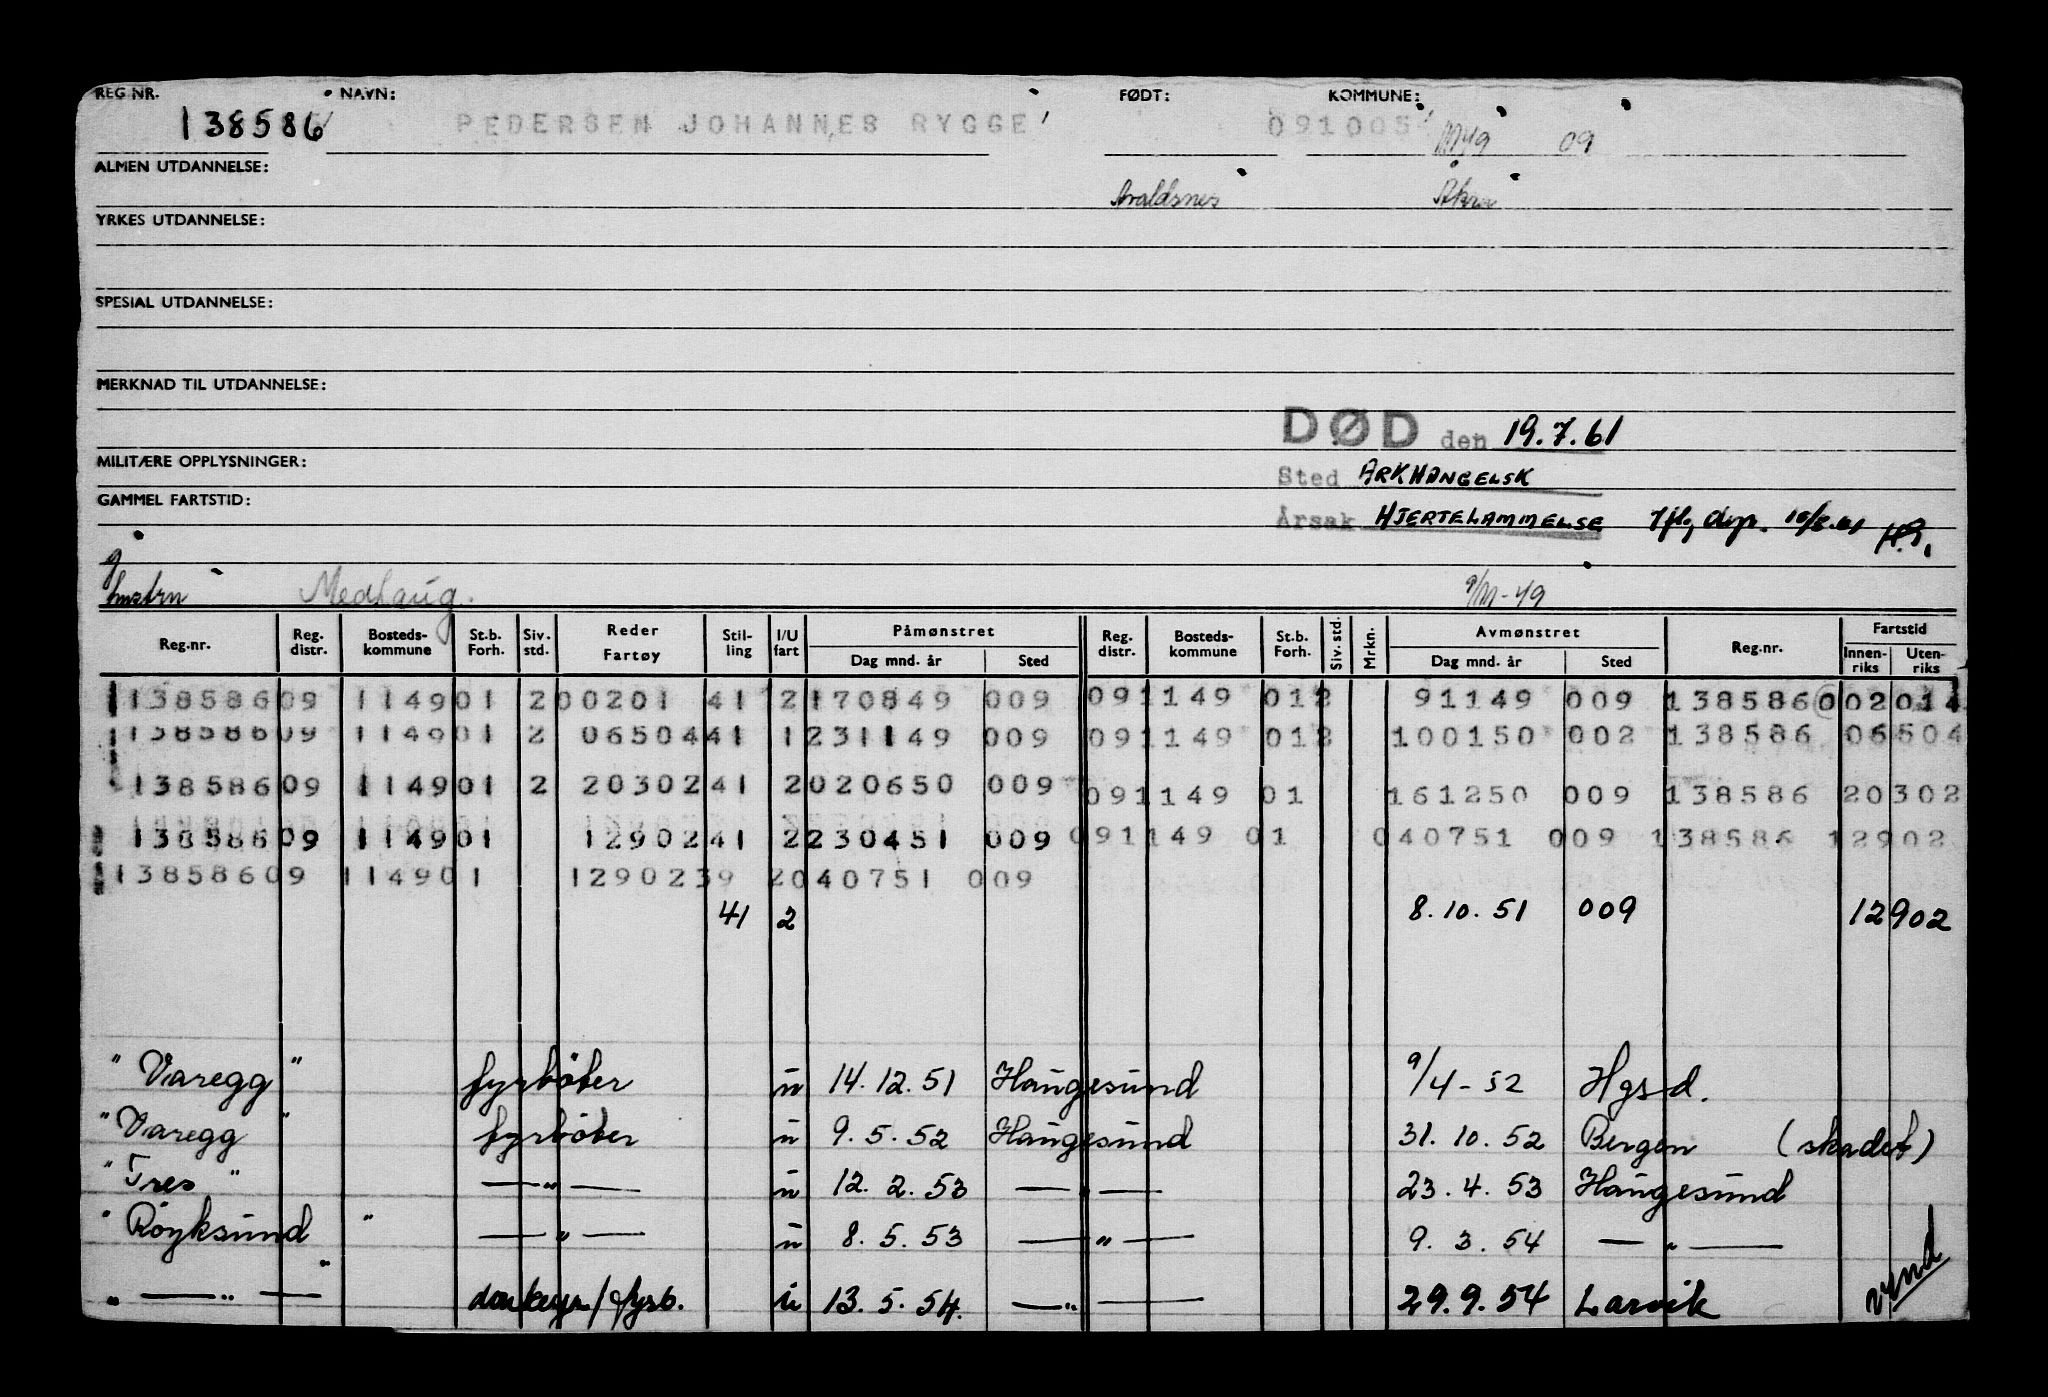 REG NR. NAVN: FØDT: KOMMUNE:
138586 PEDERSEN JOHANNES RYGGE 091005 09
ALMEN UTDANNELSE:
Avaldsnes Åkra
YRKES UTDANNELSE:
SPESIAL UTDANNELSE:
MERKNAD TIL UTDANNELSE:
DØD den 19.7.61
MILITÆRE OPPLYSNINGER:
Sted ARKHANGELSK
GAMMEL FARTSTID:
Årsak HJERTELAMMELSE
g
hustru Medhaug. 9/11-49
Reg.nr. Reg. distr. Bosteds-kommune St.b. Forh. Siv. std. Reder Fartøy Stil-ling I/U fart Påmønstret Dag mnd. år Sted Reg. distr. Bosteds-kommune St.b. Forh. Siv. std. Mrkn. Avmønstret Dag mnd. år Sted Reg.nr. Fartstid Innen-riks Uten-riks
138586 09 1149 01 2 00201 41 2 170849 009 09 1149 01 2 91149 009 138586 0 02014
138586 09 1149 01 2 06504 41 1 231149 009 09 1149 01 2 100150 002 138586 06504
138586 09 1149 01 2 20302 41 2 020650 009 09 1149 01 161250 009 138586 20302
138586 09 1149 01 12902 41 2 230451 009 09 1149 01 040751 009 138586 12902
138586 09 1149 01 12902 39 2 040751 009
41 2 8.10.51 009 12902
"Varegg" fyrbøter u 14.12.51 Haugesund 9/4-52 Hgsd.
"Varegg" fyrbøter u 9.5.52 Haugesund 31.10.52 Bergen (skadet)
"Tres" —"— u 12.2.53 —"— 23.4.53 Haugesund
"Røyksund" —"— u 8.5.53 —"— 9.3.54 —"—
" —"— " donkeym/fyrb. u 13.5.54. —"— 29.9.54 Larvik
vend